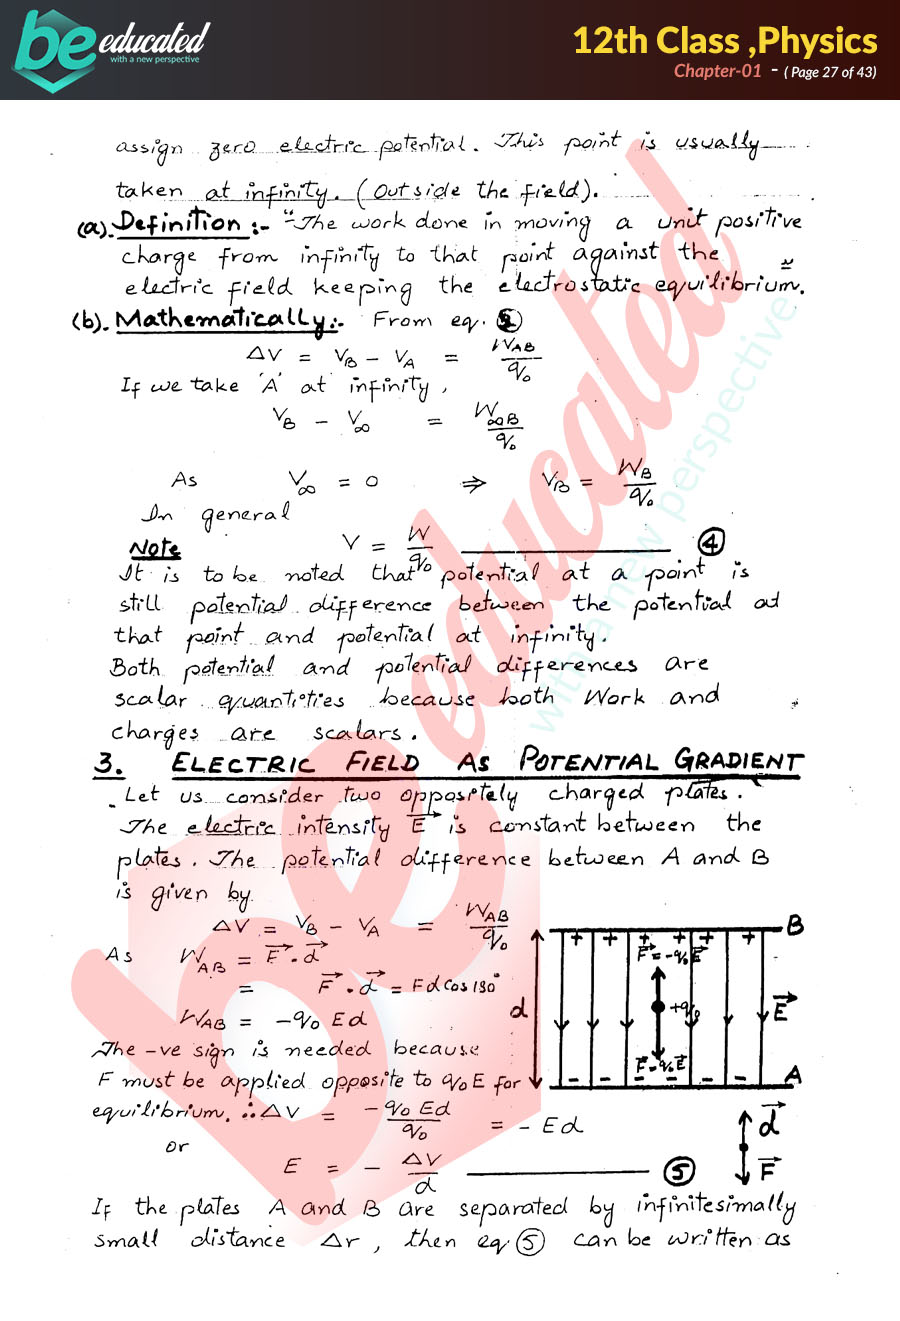 be educated
with a new perspective
12th Class ,Physics
Chapter-01 - ( Page 27 of 43)
assign zero electric potential. This point is usually
taken at infinity. (Outside the field).
(a). Definition :- "The work done in moving a unit positive
charge from infinity to that point against the
electric field keeping the electrostatic equilibrium."
(b). Mathematically:- From eq.
ΔV = V_B - V_A = W_AB / q₀
If we take 'A' at infinity,
V_B - V_∞ = W_∞B / q₀
As V_∞ = 0 ⇒ V_B = W_B / q₀
In general
V = W / q₀ ④
Note
It is to be noted that potential at a point is
still potential difference between the potential at
that point and potential at infinity.
Both potential and potential differences are
scalar quantities because both Work and
charges are scalars.
3. ELECTRIC FIELD AS POTENTIAL GRADIENT
Let us consider two oppositely charged plates.
The electric intensity E⃗ is constant between the
plates. The potential difference between A and B
is given by
ΔV = V_B - V_A = W_AB / q₀
As W_AB = F⃗ . d⃗
= F⃗ . d⃗ = Fd cos 180°
W_AB = -q₀ Ed
The -ve sign is needed because
F must be applied opposite to q₀E for
equilibrium. ∴ ΔV = -q₀ Ed / q₀ = - Ed
or
E = - ΔV / d ⑤
B
+ + + + + +
F⃗ = -q₀E⃗
d
+q₀
E⃗
F⃗ = q₀E⃗
- - - - - -
A
d⃗
F⃗
If the plates A and B are separated by infinitesimally
small distance Δr, then eq ⑤ can be written as
be educated
with a new perspective